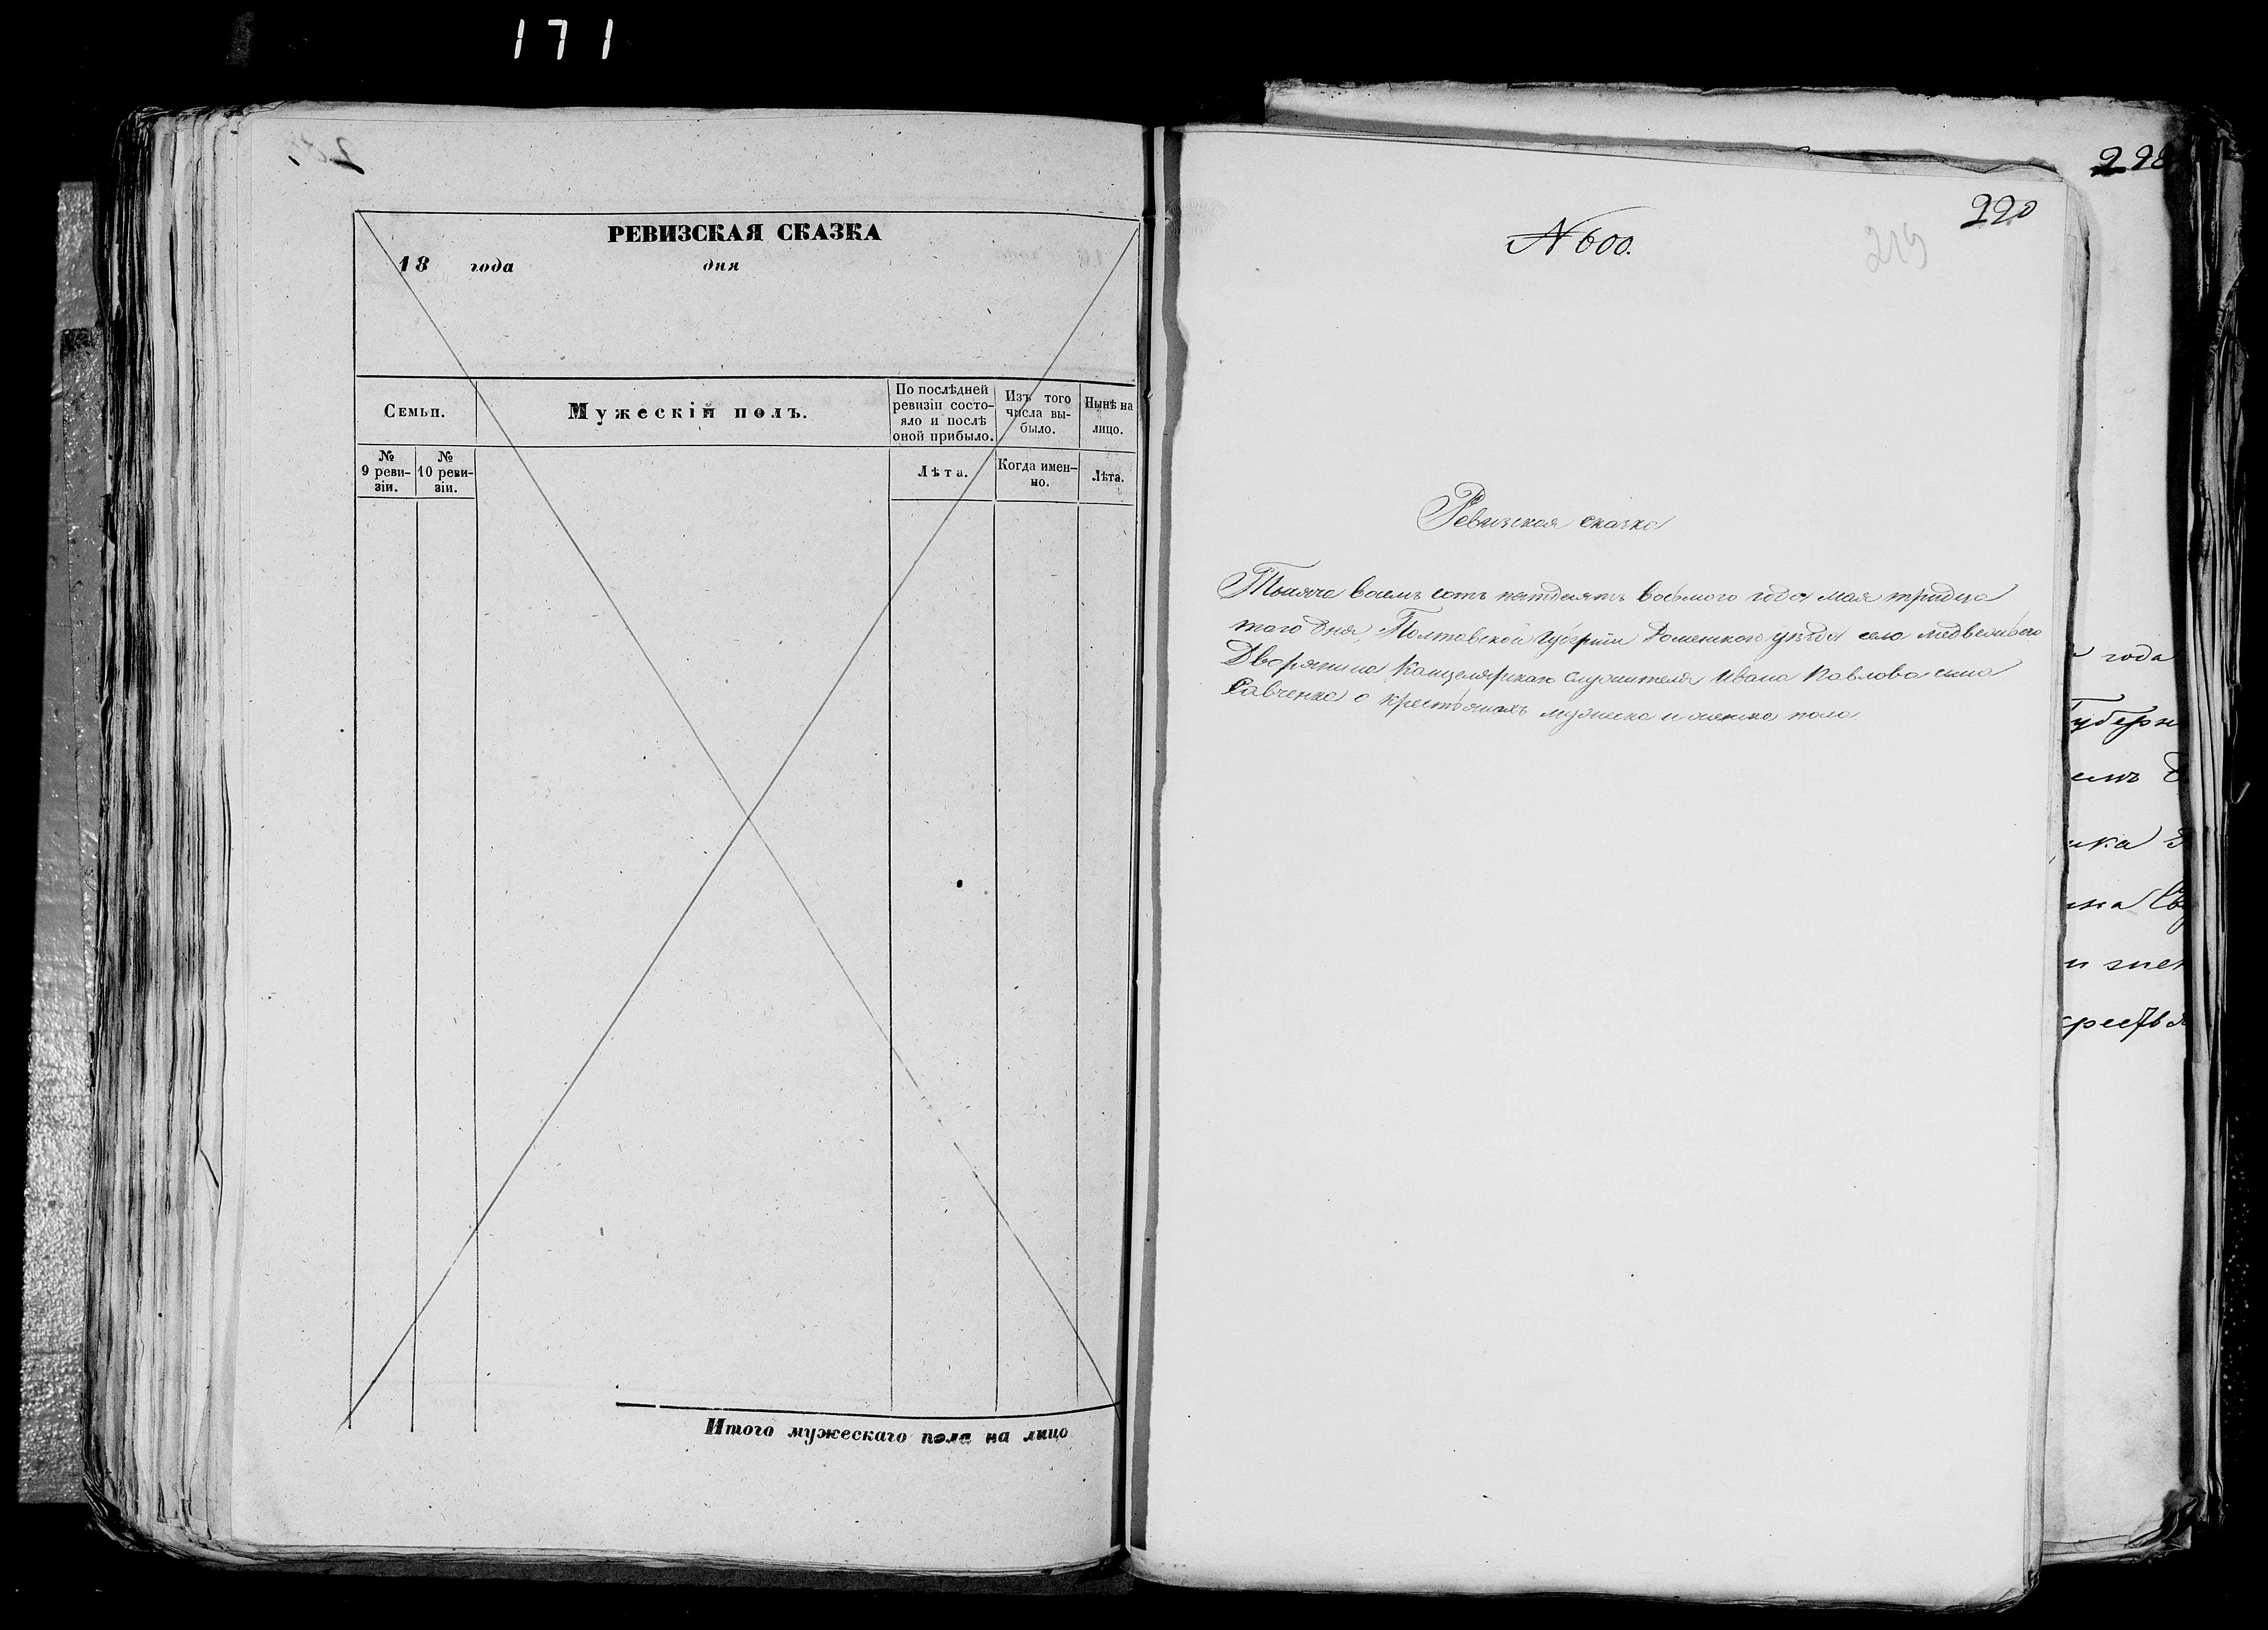 171
РЕВИЗСКАЯ СКАЗКА
18 года дня
Семьи.
Мужескій полъ.
По послѣдней ревизіи состо-
яло и послѣ
оной прибыло.
Изъ того
числа вы-
было.
Нынѣ на
лицо.
№
9 реви-
зіи.
№
10 реви-
зіи.
Лѣта.
Когда имен-
но.
Лѣта.
Итого мужескаго пола на лицо
220
219
№ 600.
Ревизская сказка
Тысяча восемь сотъ пятдесятъ восьмого года мая тридца
таго дня, Полтавской Губерніи Роменского уѣзда села медвежьего
Дворянина Канцелярскаго служителя Ивана Павлова сына
Савченка о крестьянахъ мужеска и женска пола
228
года
Губерн